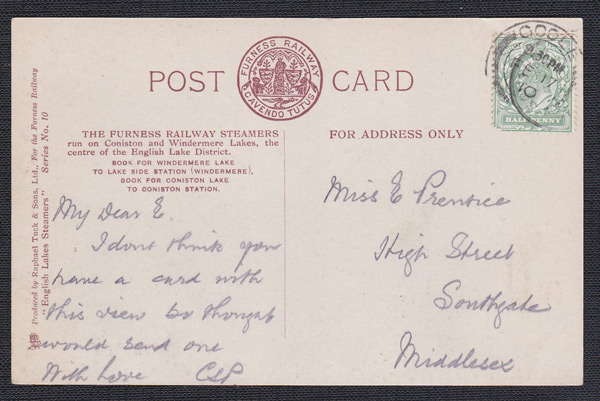 POST CARD
FURNESS RAILWAY
CAVENDO TUTUS
THE FURNESS RAILWAY STEAMERS
run on Coniston and Windermere Lakes, the
centre of the English Lake District.
BOOK FOR WINDERMERE LAKE
TO LAKE SIDE STATION (WINDERMERE),
BOOK FOR CONISTON LAKE
TO CONISTON STATION.
My Dear E.
I dont think you
have a card with
this view so thought
would send one
With love CSP
FOR ADDRESS ONLY
Miss E Prentice
High Street
Southgate
Middlesex
HALF PENNY
9.30PM
Produced by Raphael Tuck & Sons, Ltd., For the Furness Railway
"English Lakes Steamers" Series No. 10